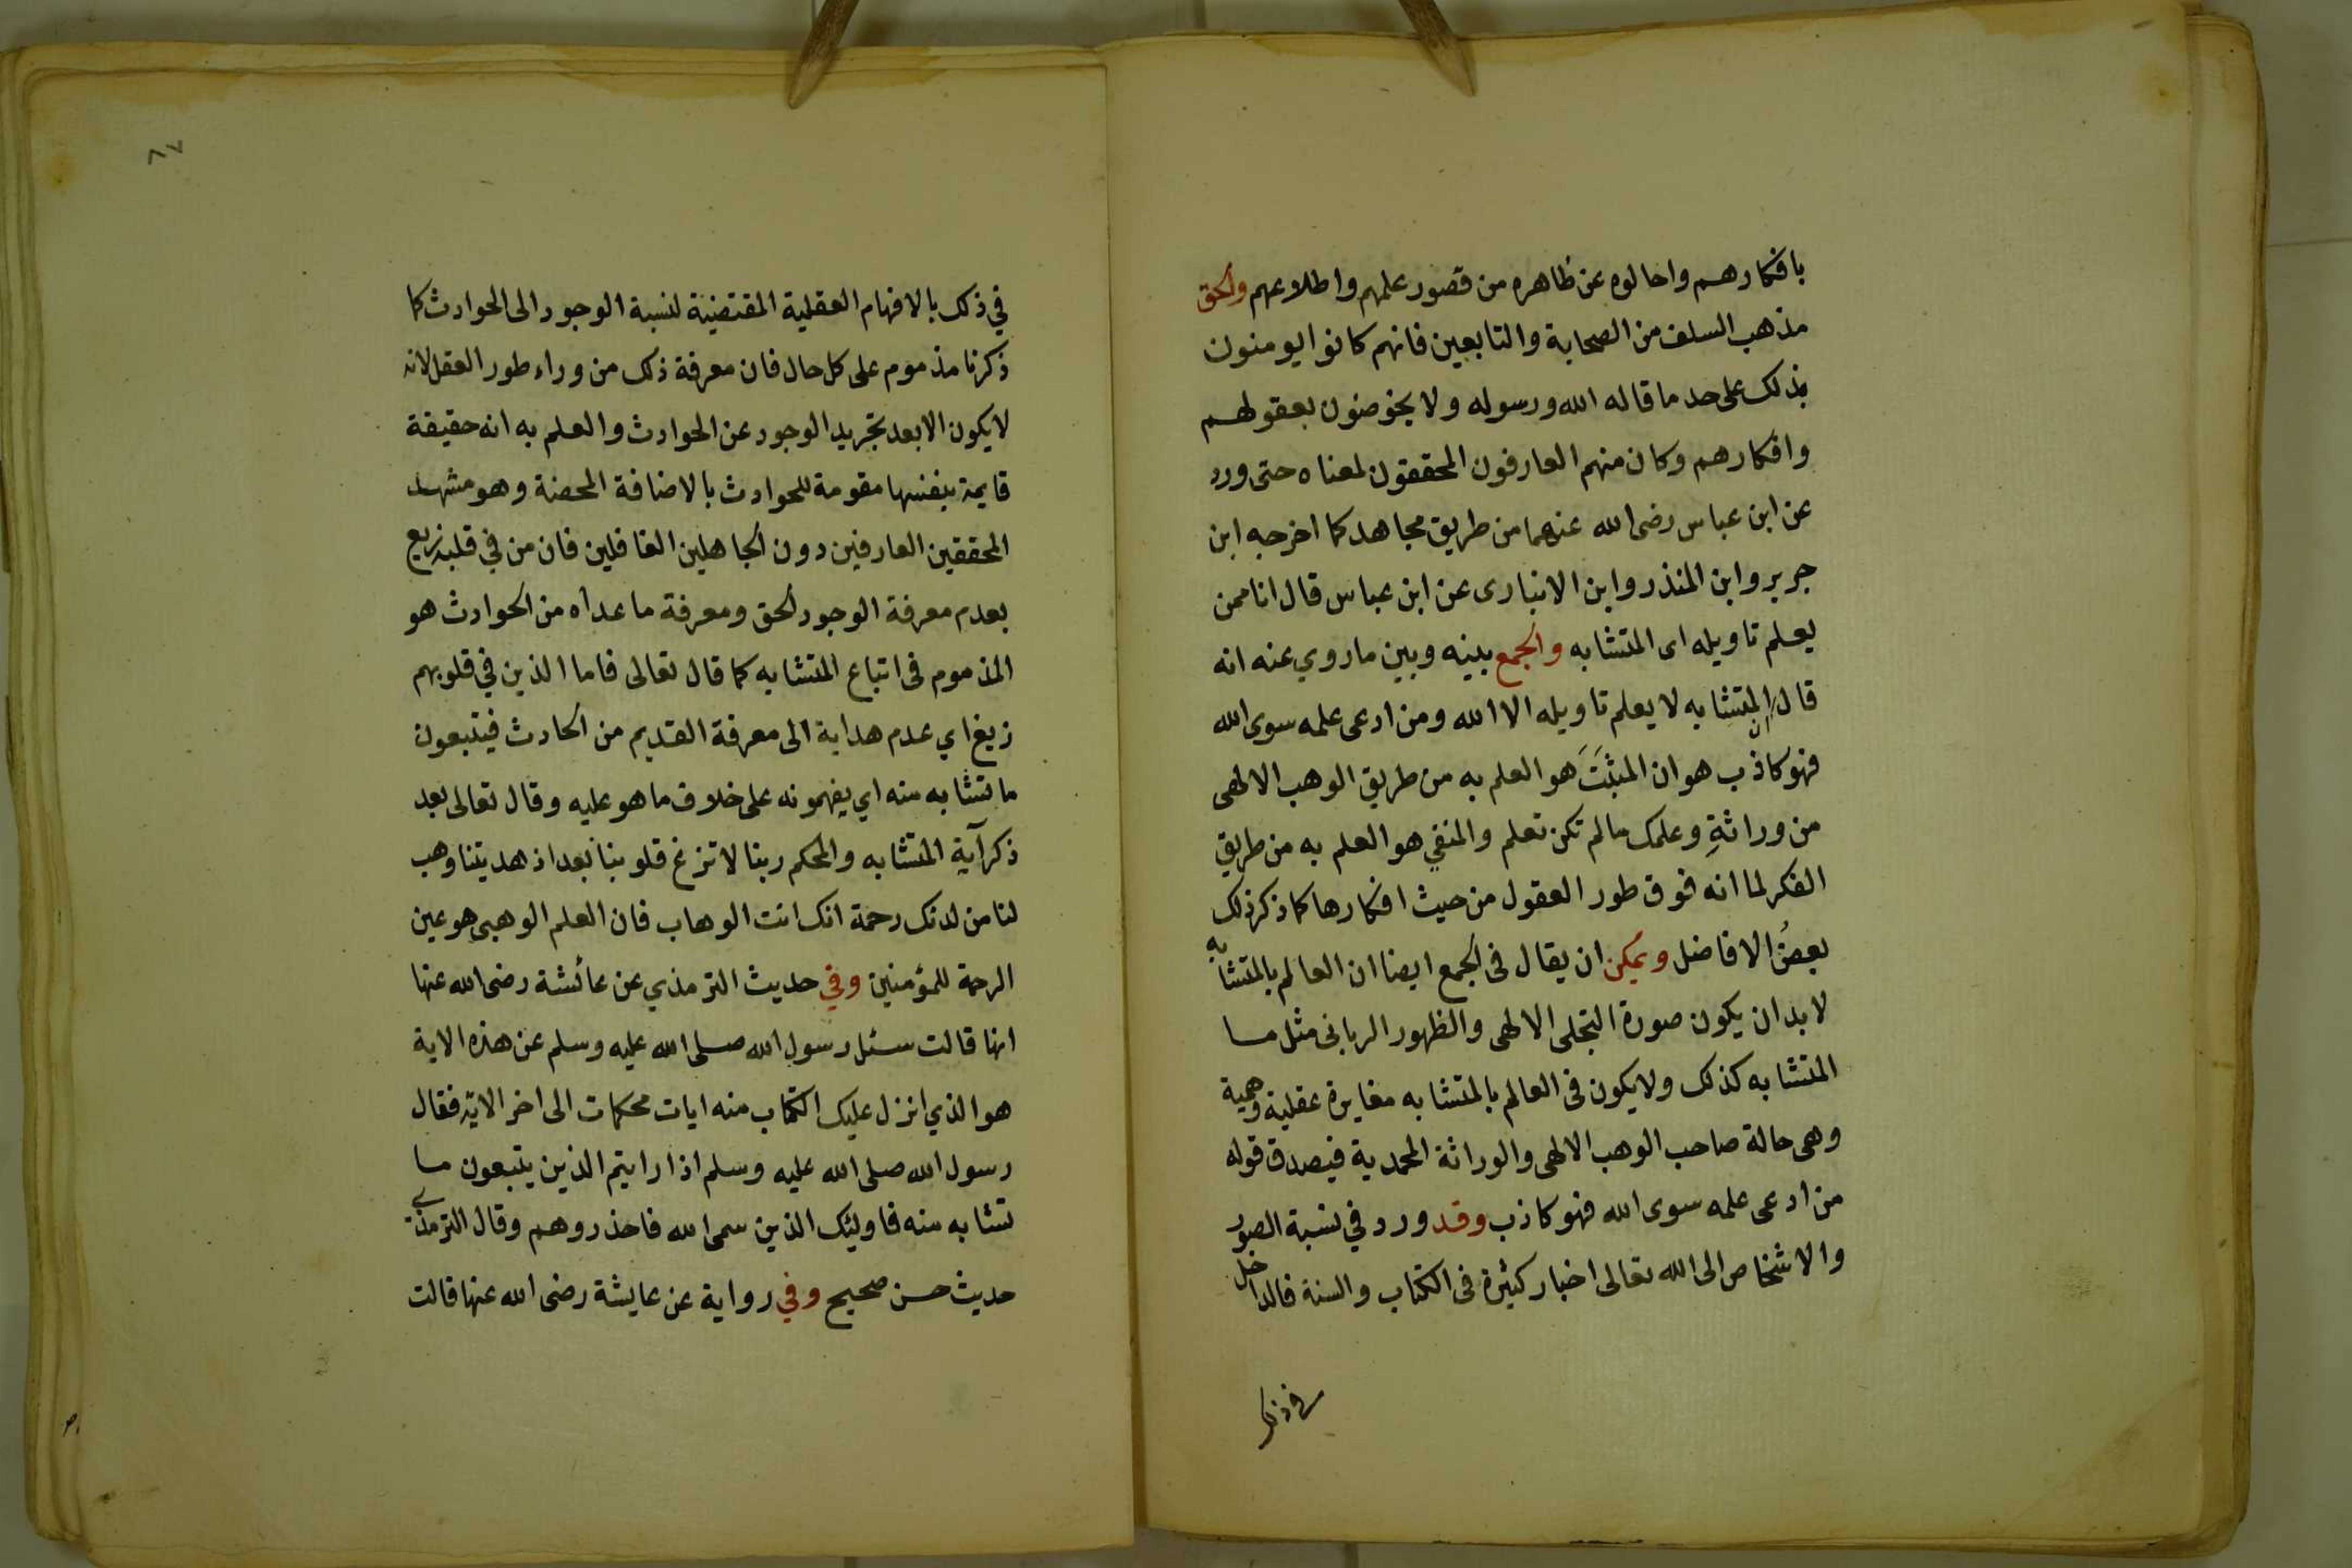 بافكارهم واحالوه عن ظاهره من قصور علمهم واطلاعهم والحق
مذهب السلف من الصحابة والتابعين فانهم كانوا يومنون
بذلك على حد ما قاله الله ورسوله ولا يخوضون بعقولهم
وافكارهم وكان منهم العارفون المحققون لمعناه حتى ورد
عن ابن عباس رضى الله عنهما من طريق مجاهد كما اخرجه ابن
جرير وابن المنذر وابن الانبارى عن ابن عباس قال انا ممن
يعلم تاويله اى المتشابه والجمع بينه وبين ما روي عنه انه
قال ان المتشابه لا يعلم تاويله الا الله ومن ادعى علمه سوى الله
فهو كاذب هو ان المثبَتَ هو العلم به من طريق الوهب الالهى
من وراثةِ وعلمك ما لم تكن تعلم والمنفي هو العلم به من طريق
الفكر لما انه فوق طور العقول من حيث افكارها كما ذكر ذلك
بعضُ الافاضل ويمكن ان يقال فى الجمع ايضا ان العالم بالمتشابه
لا بد ان يكون صورة التجلى الالهى والظهور الربانى مثل ما
المتشابه كذلك ولا يكون فى العالم بالمتشابه مغايرة عقلية وهمية
وهى حالة صاحب الوهب الالهى والوراثة المحمدية فيصدق قوله
من ادعى علمه سوى الله فهو كاذب وقد ورد في نسبة الصور
والاشخاص الى الله تعالى اخبار كثيرة فى الكتاب والسنة فالداخل
في ذلك
٨٧
في ذلك بالافهام العقلية المقتضية لنسبة الوجود الى الحوادث كما
ذكرنا مذموم على كل حال فان معرفة ذلك من وراء طور العقل لانه
لا يكون الا بعد تجريد الوجود عن الحوادث والعلم به انه حقيقة
قايمة بنفسها مقومة للحوادث بالاضافة المحضة وهو مشهد
المحققين العارفين دون الجاهلين الغافلين فان من في قلبه زيغ
بعدم معرفة الوجود الحق ومعرفة ما عداه من الحوادث هو
المذموم فى اتباع المتشابه كما قال تعالى فاما الذين في قلوبهم
زيغ اي عدم هداية الى معرفة القديم من الحادث فيتبعون
ما تشابه منه اي يفهمونه على خلاف ما هو عليه وقال تعالى بعد
ذكر آية المتشابه والمحكم ربنا لا تزغ قلوبنا بعد اذ هديتنا وهب
لنا من لدنك رحمة انك انت الوهاب فان العلم الوهبي هو عين
الرحمة للمؤمنين وفي حديث الترمذي عن عائشة رضى الله عنها
انها قالت سئل رسول الله صلى الله عليه وسلم عن هذه الاية
هو الذي انزل عليك الكتاب منه ايات محكمات الى اخر الاية فقال
رسول الله صلى الله عليه وسلم اذا رايتم الذين يتبعون ما
تشابه منه فاوليك الذين سمى الله فاحذروهم وقال الترمذي
حديث حسن صحيح وفي رواية عن عايشة رضى الله عنها قالت